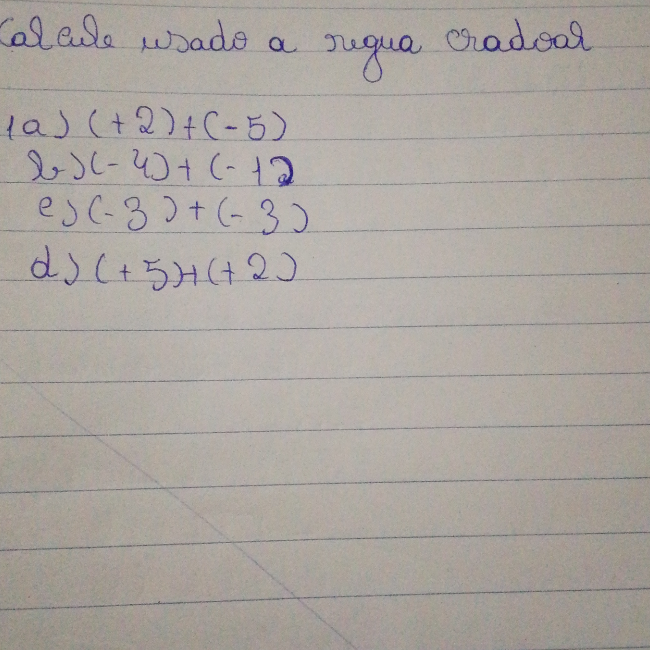 Calcule usado a regua cradoal
1a) (+2)+(-5)
b) (-4)+(-12
c) (-3)+(-3)
d) (+5)+(+2)